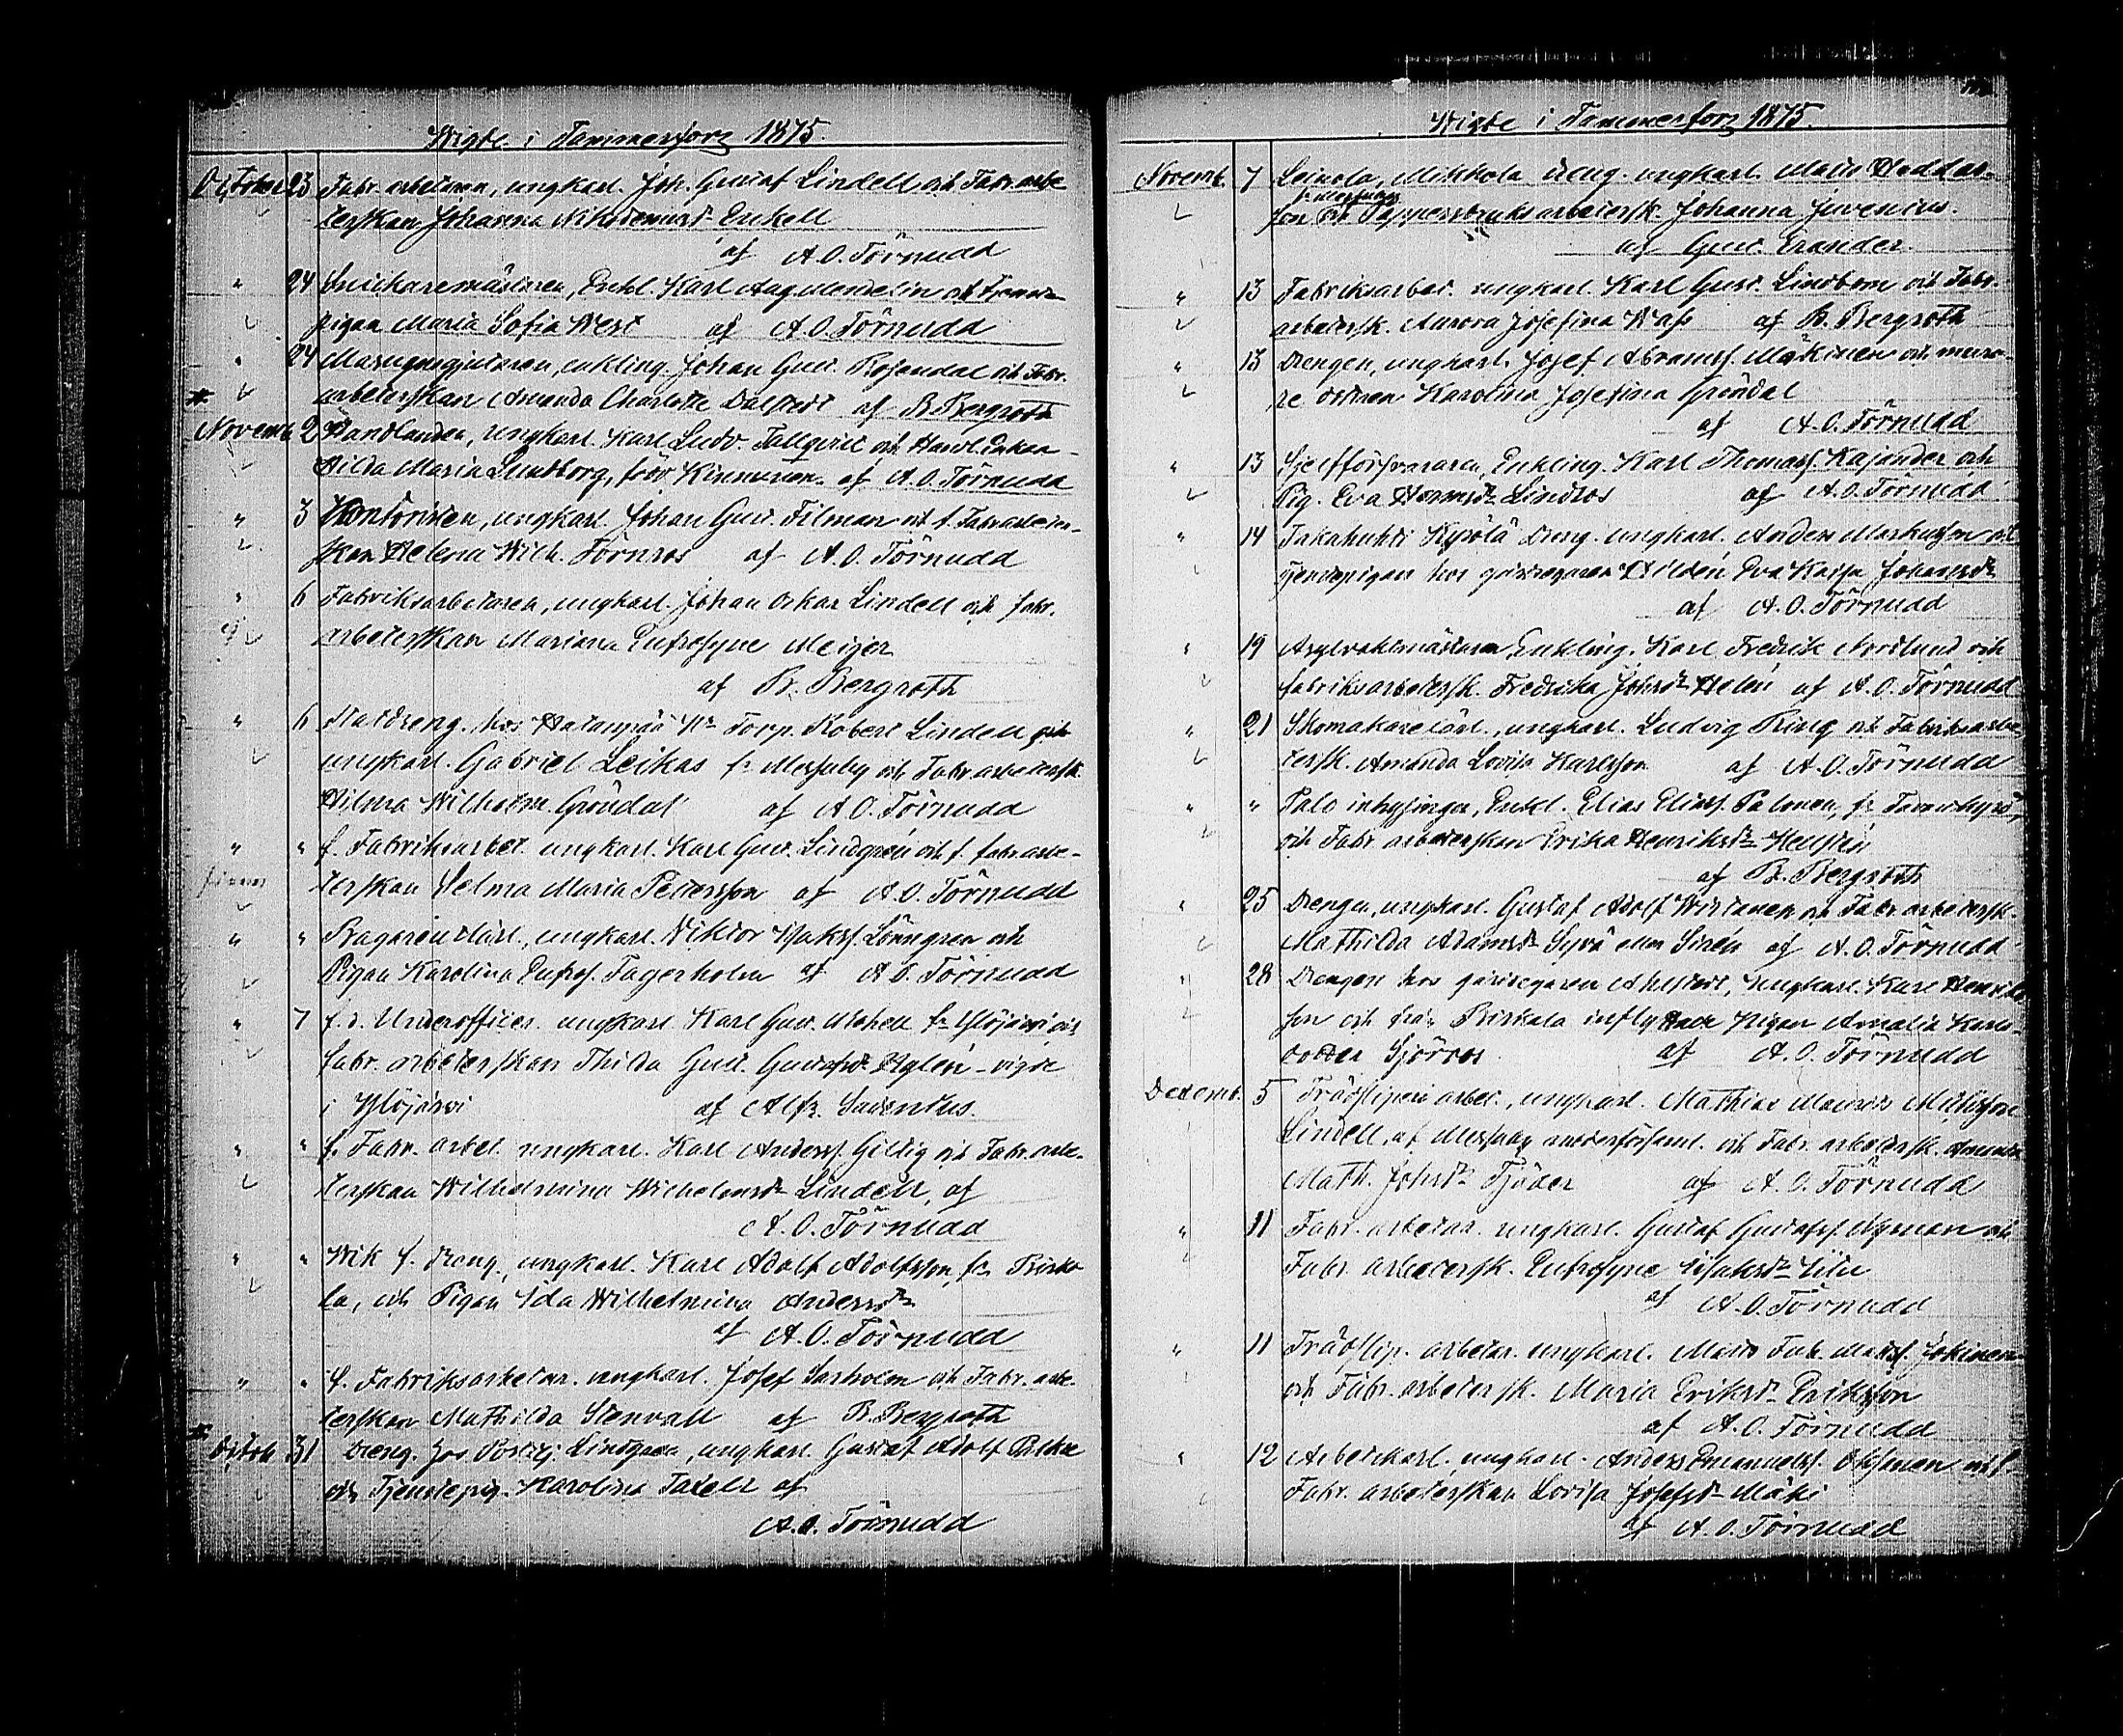 Wigde i Tammerfors 1875.
October 23 Fabr. arbetaren, ungkarl. Joh. Gustaf Lindell och Fabr. arbe
terskan Johanna Nikodemusdr Enkell
af A. O. Törnudd
" 24 Snickaremästaren, Enkl. Karl Aug. Mendelin och Tjenste
pigan Maria Sofia West af A. O. Törnudd
" 24 Masugnsgjutaren, enkling. Johan Gust. Rosendal och Fabr.
arbeterskan Amanda Charlotta Dalstedt af B. Bergroth
Novemb. 2 Handlanden, ungkarl. Karl Ludv. Tallqvist och Handl. Enkan
Hilda Maria Lundborg, född Kinnunen. af A. O. Törnudd
" 3 Kontoristen, ungkarl. Johan Gust. Filman och f. Fabr arbeter-
skan Helena Wilh. Törnros af A. O. Törnudd
" 6 Fabriksarbetaren, ungkarl. Johan Oskar Lindell och fabr.
arbeterskan Mariana Eufrosyne Meijer
af B. Bergroth
" 6 Statdreng. hos Hatanpää Torp. Robert Lindell och
ungkarl. Gabriel Leikas fr Messuby och Fabr. arbetersk.
Hilma Wilhelm. Gröndal af A. O. Törnudd
" " f. Fabriksarbet. ungkarl. Karl Gust. Lindgrén och f. fabr. arbe-
terskan Selma Maria Pettersson af A. O. Törnudd
" " Bagarelärl., ungkarl. Viktor Isakss. Lönngren och
Pigan Karolina Eufros. Fagerholm af A. O. Törnudd
" 7 f. d. Underofficer. ungkarl. Karl Gust. Mohell fr Ylöjärvi och
fabr. arbeterskan Thilda Gust. Gustafsdr Nylén - vigde
i Ylöjärvi af Alfr. Savenius.
" " f. Fabr. arbet. ungkarl. Karl Anderss. Gillig och Fabr. arbe-
terskan Wilhelmina Wilhelmsdr Lindell, af
A. O. Törnudd
" " Wik f. Dreng., ungkarl. Karl Adolf Adolfsson fr Birka
la, och Pigan Ida Wilhelmina Andersdr
af A. O. Törnudd
" " f. Fabriksarbetar. ungkarl. Josef Saxholm och Fabr. arbe-
terskan Mathilda Stenvall af B. Bergroth
Octob. 31 Dreng. hos Lindgren, ungkarl. Gustaf Adolf
och Tjenstepig. Karolina Taxell af
A. O. Törnudd
Wigde i Tammerfors 1875.
Novemb. 7 Leinola, Mikkola dreng. ungkarl. Matts
fr Messuby
son och Pappersbruksarbetersk. Johanna Juvenius.
af Gust. Erander.
" 13 Fabriksarbet. ungkarl. Karl Gust. Lindbom och Fabr.
arbetersk. Aurora Josefina Wass af B. Bergroth
" 13 Drengen, ungkarl. Josef Abramss. Mäkinen och mura-
re dottren Karolina Josefina Gröndal
af A. O. Törnudd
" 13 Sjelfförsvararen, Enkling. Karl Thomass. Kajander och
Pig. Eva Lindros af A. O. Törnudd
" 14 Takahuhti Kyrölä Dreng. ungkarl. Anders Markusson och
tjenstepigan hos gårdegaren Hildén Eva Kaisa Johansdr
af A. O. Törnudd
" 19 Asylvaktmästaren, Enkling. Karl Fredrik Nordlund och
fabriksarbetersk. Fredrika Johsdr Helén af A. O. Törnudd
" 21 Skomakarelärl., ungkarl. Ludvig Ring och Fabriksarbe
tersk. Amanda Lovisa Karlsson af A. O. Törnudd
" " Talo inhysingen, Enkl. Elias Eliass. Palonen, fr Tavastkyrö,
och Fabr. arbeterskan Erika Henriksdr Hellstén
af B. Bergroth
" 25 Drengen, ungkarl. Gustaf Adolf Wirtanen och Fabr. arbetersk.
Mathilda Adamsdr Syvä eller Sirén af A. O. Törnudd
" 28 Drengen hos gårdegaren Ahlstedt, ungkarl. Karl Henriks
son och från Birkala inflyttade Pigan Amalia Karls-
dotter Sjöroos af A. O. Törnudd
Decemb. 5 Trädsliperi arbet., ungkarl. Mathias
Lindell, af Messuby moderförsaml. och Fabr. arbetersk. Amanda
Math. Johsdr Tjäder af A. O. Törnudd
" 11 Fabr. arbetar. ungkarl. Gustaf Gustafss. Nyman och
Fabr. arbetersk. Eufrosyne Isaksdr
af A. O. Törnudd
" 11 Trädslip. arbetar. ungkarl. Matts Fab. Mattss. Jokinen
och Fabr. arbetersk. Maria Eriksdr Eriksson
af A. O. Törnudd
" 12 Arbetskarl. ungkarl. Anders Emanuelss. och f.
Fabr. arbeterskan Lovisa Josefsdr Mäki
af A. O. Törnudd